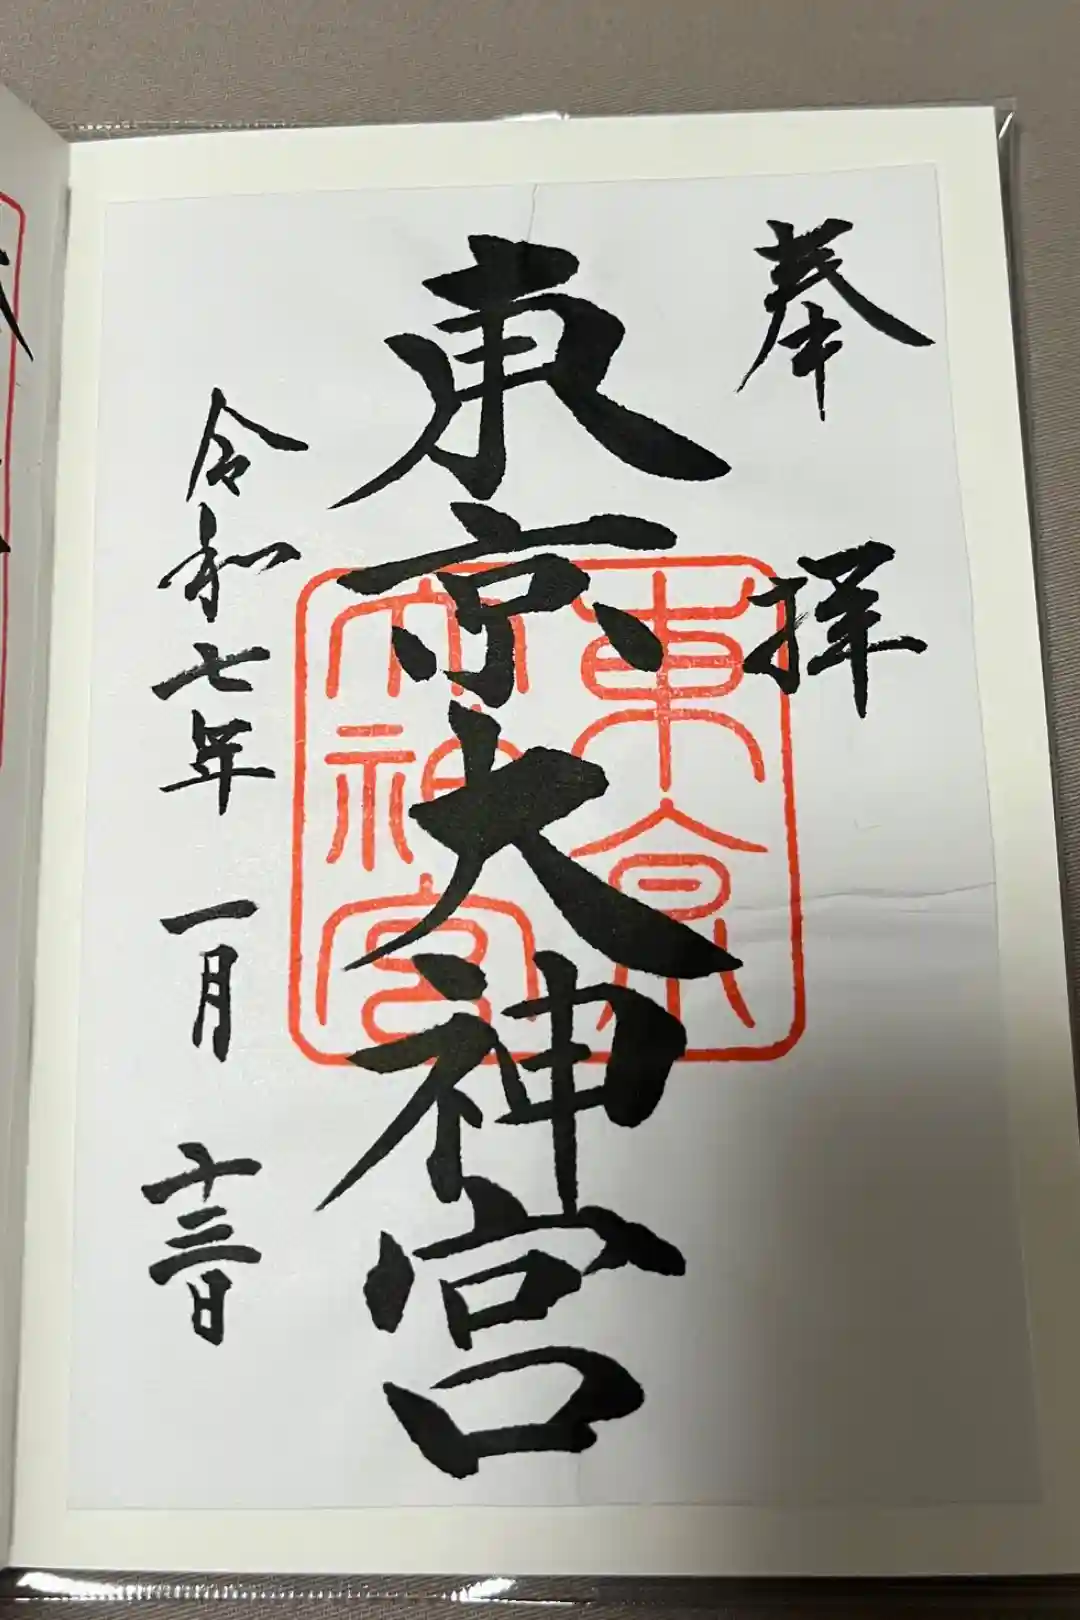 奉拝
東京大神宮
東京
大神宮
令和七年一月十三日